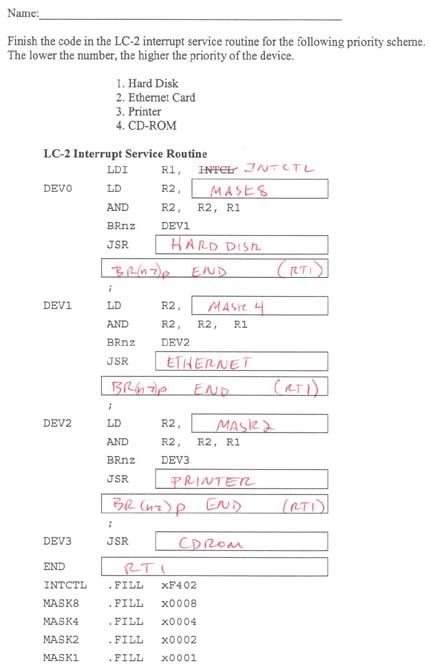 Name:
Finish the code in the LC-2 interrupt service routine for the following priority scheme.
The lower the number, the higher the priority of the device.
1. Hard Disk
2. Ethernet Card
3. Printer
4. CD-ROM
LC-2 Interrupt Service Routine
LDI R1, INTCL INTCTL
DEV0 LD R2, MASK8
AND R2, R2, R1
BRnz DEV1
JSR HARD DISK
BR(nz)p END (RTI)
;
DEV1 LD R2, MASK 4
AND R2, R2, R1
BRnz DEV2
JSR ETHERNET
BR(nz)p END (RTI)
;
DEV2 LD R2, MASK2
AND R2, R2, R1
BRnz DEV3
JSR PRINTER
BR(nz)p END (RTI)
;
DEV3 JSR CDROM
END RTI
INTCTL .FILL xF402
MASK8 .FILL x0008
MASK4 .FILL x0004
MASK2 .FILL x0002
MASK1 .FILL x0001